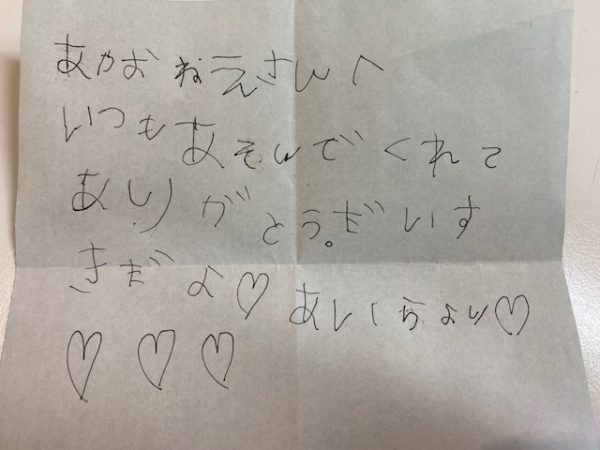 あかおねえさんへ
いつもあそんでくれて
ありがとう。だいす
きだよ♡ あいくらより♡
♡♡♡